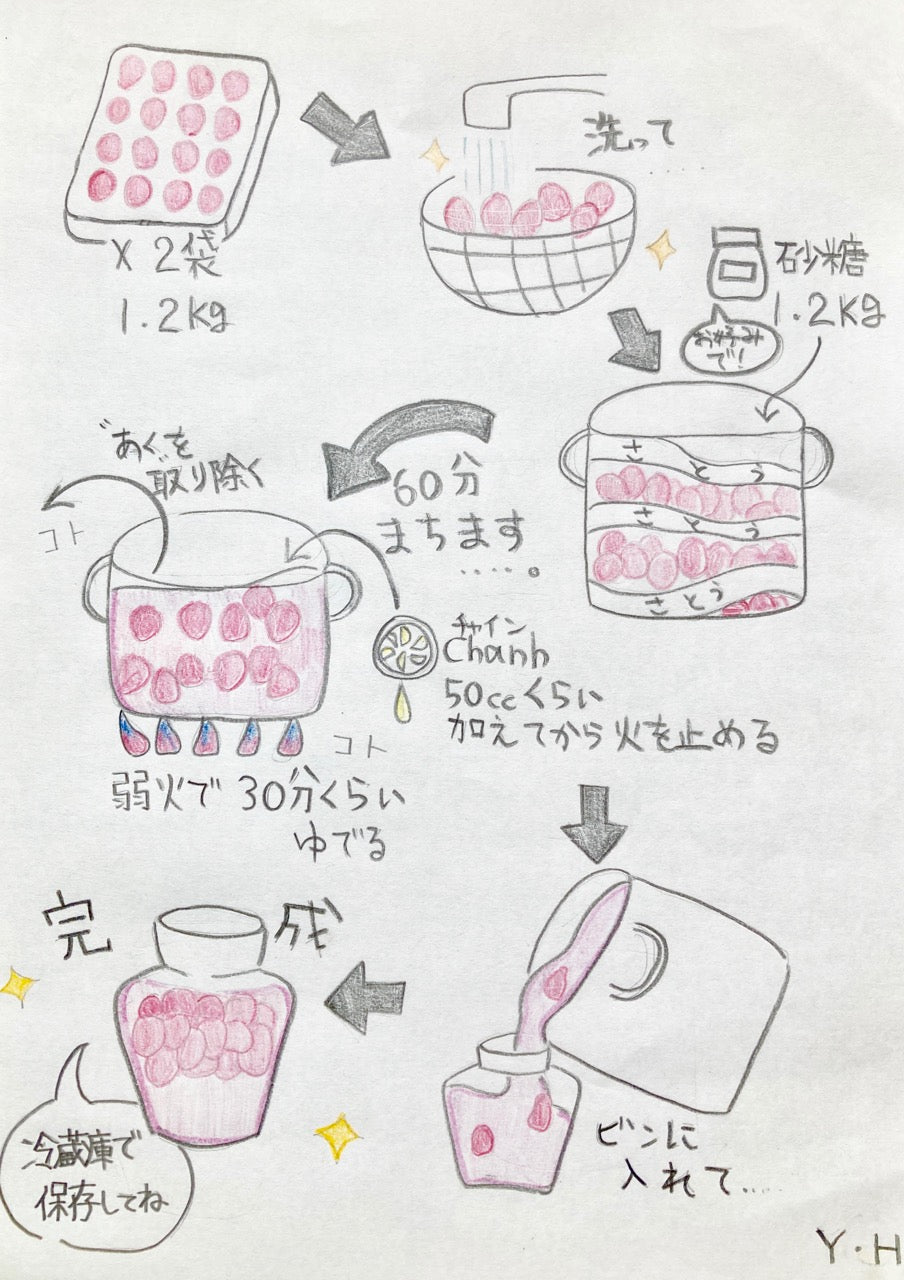 × 2袋
1.2kg
洗って
……
砂糖
1.2kg
お好み
で!
さとう
さとう
さとう
60分
まちます
……。
"あく"を
取り除く
コト
チャイン
Chanh
50ccくらい
加えてから火を止める
コト
弱火で 30分くらい
ゆでる
ビンに
入れて……
完成
冷蔵庫で
保存してね
Y・H